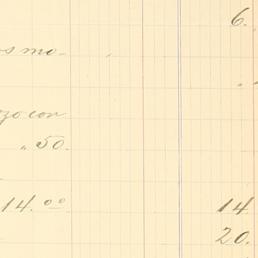 6.
os mo-
zo con
„ 50.
14.00 14
20.